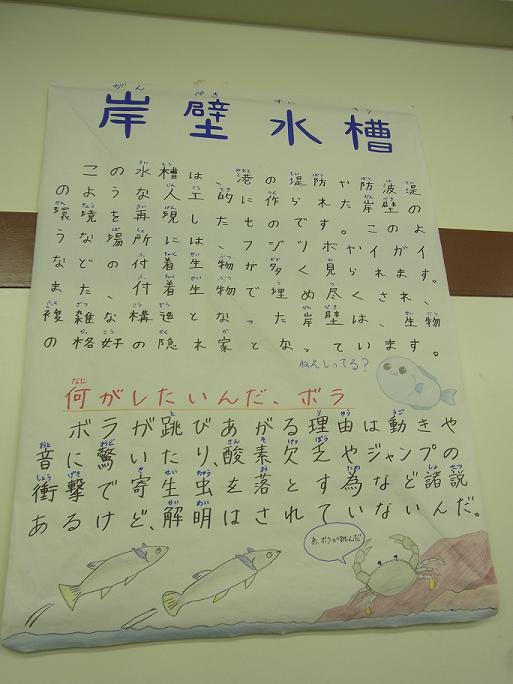 岸壁水槽
この水槽は、港の堤防や防波堤
のような人工的に作られた岸壁の
環境を再現したものです。このよ
うな場所には、フジツボやイガイ
などの付着生物が多く見られます。
また、付着生物で埋め尽くされ、
複雑な構造となった岸壁は、生物
の格好の隠れ家となっています。
ねぇしってる?
何がしたいんだ、ボラ
ボラが跳びあがる理由は動きや
音に驚いたり、酸素欠乏やジャンプの
衝撃で寄生虫を落とす為など諸説
あるけど、解明はされていないんだ。
あ、ボラが跳んだ